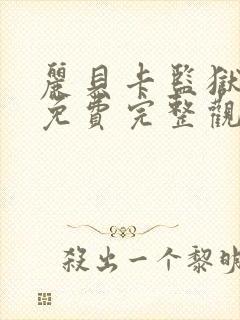 麗貝卡監獄
免費完整觀
殺出一个黎明